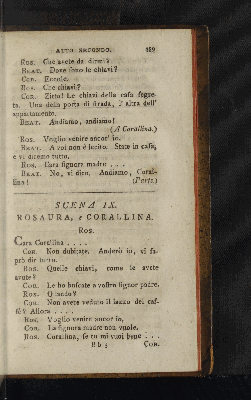 ATTO SECONDO. 189
Ros. Che avete da dirmi?
Beat. Dove sono le chiavi?
Cor. Eccole.
Ros. Che chiavi?
Cor. Zitto! Le chiavi della casa segre-
ta. Una della porta di strada, l'altra dell'
appartamento.
Beat. Andiamo, andiamo!
(A Corallina.)
Ros. Voglio venire ancor' io.
Beat. A voi non è lecito. State in casa,
e vi diremo tutto.
Ros. Cara signora madre . . . .
Beat. No, vi dico. Andiamo, Coral-
lina! (Parte.)
SCENA IX.
ROSAURA, e CORALLINA.
Ros.
Cara Corallina . . . .
Cor. Non dubitate. Anderò io, vi sa-
prò dir tutto.
Ros. Quelle chiavi, come le avete
avute?
Cor. Le ho buscate a vostro signor padre.
Ros. Quando?
Cor. Non avete veduto il lazzo del caf-
fè? Allora . . . .
Ros. Voglio venire ancor io.
Cor. La signora madre non vuole.
Ros. Corallina, se tu mi vuoi bene . . .
Bb 3 Cor.